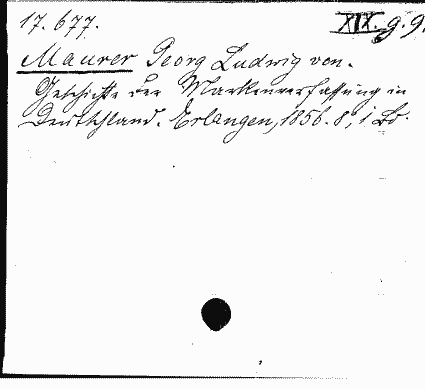 17.677. XIX. g. 9.
Maurer Georg Ludwig von.
Geschichte der Markenverfassung in
Deutschland. Erlangen, 1856. 8°, 1 Bd.